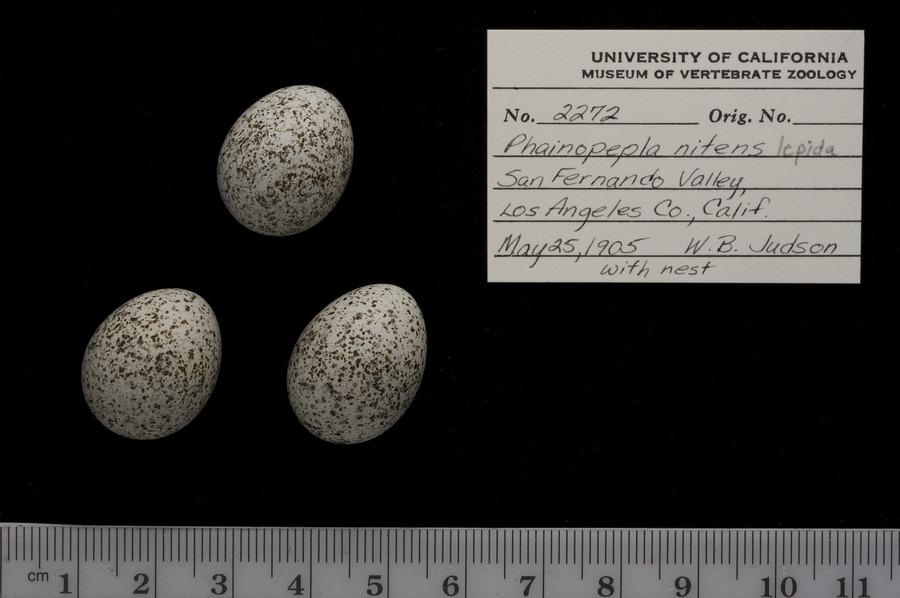 UNIVERSITY OF CALIFORNIA
MUSEUM OF VERTEBRATE ZOOLOGY
No. 2272 Orig. No.
Phainopepla nitens lepida
San Fernando Valley,
Los Angeles Co., Calif.
May 25, 1905 W. B. Judson
with nest
cm 1 2 3 4 5 6 7 8 9 10 11